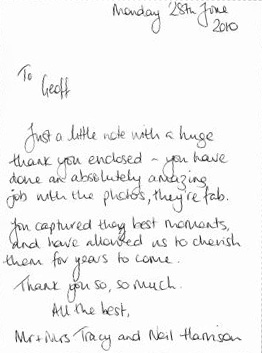 Monday 28th June
2010
To
Geoff
Just a little note with a huge
thank you enclosed ~ you have
done an absolutely amazing
job with the photos, they're fab.
You captured they best moments,
and have allowed us to cherish
them for years to come.
Thank you so, so much.
All the best,
Mr + Mrs Tracy and Neil Harrison